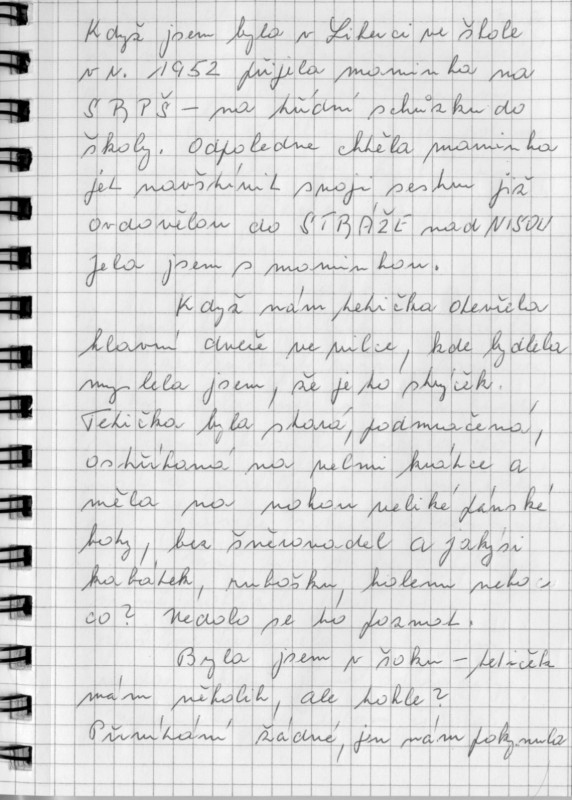 Když jsem byla v Liberci ve škole
v r. 1952 přijela maminka na
SRPŠ – na třídní schůzku do
školy. Odpoledne chtěla maminka
jet navštívit svoji sestru již
ovdovělou do STRÁŽE nad NISOU
Jela jsem s maminkou.
Když nám tetička otevřela
hlavní dveře ve vilce, kde bydlela
myslela jsem, že je to strýček.
Tetička byla stará, podmračená,
ostříhaná na velmi krátce a
měla na nohou veliké pánské
boty, bez šněrovadel a jakýsi
kabátek, rubošku, halenu nebo
co? Nedalo se to poznat.
Byla jsem v šoku – tetiček
mám několik, ale tohle?
Přivítání žádné, jen nám pokynula